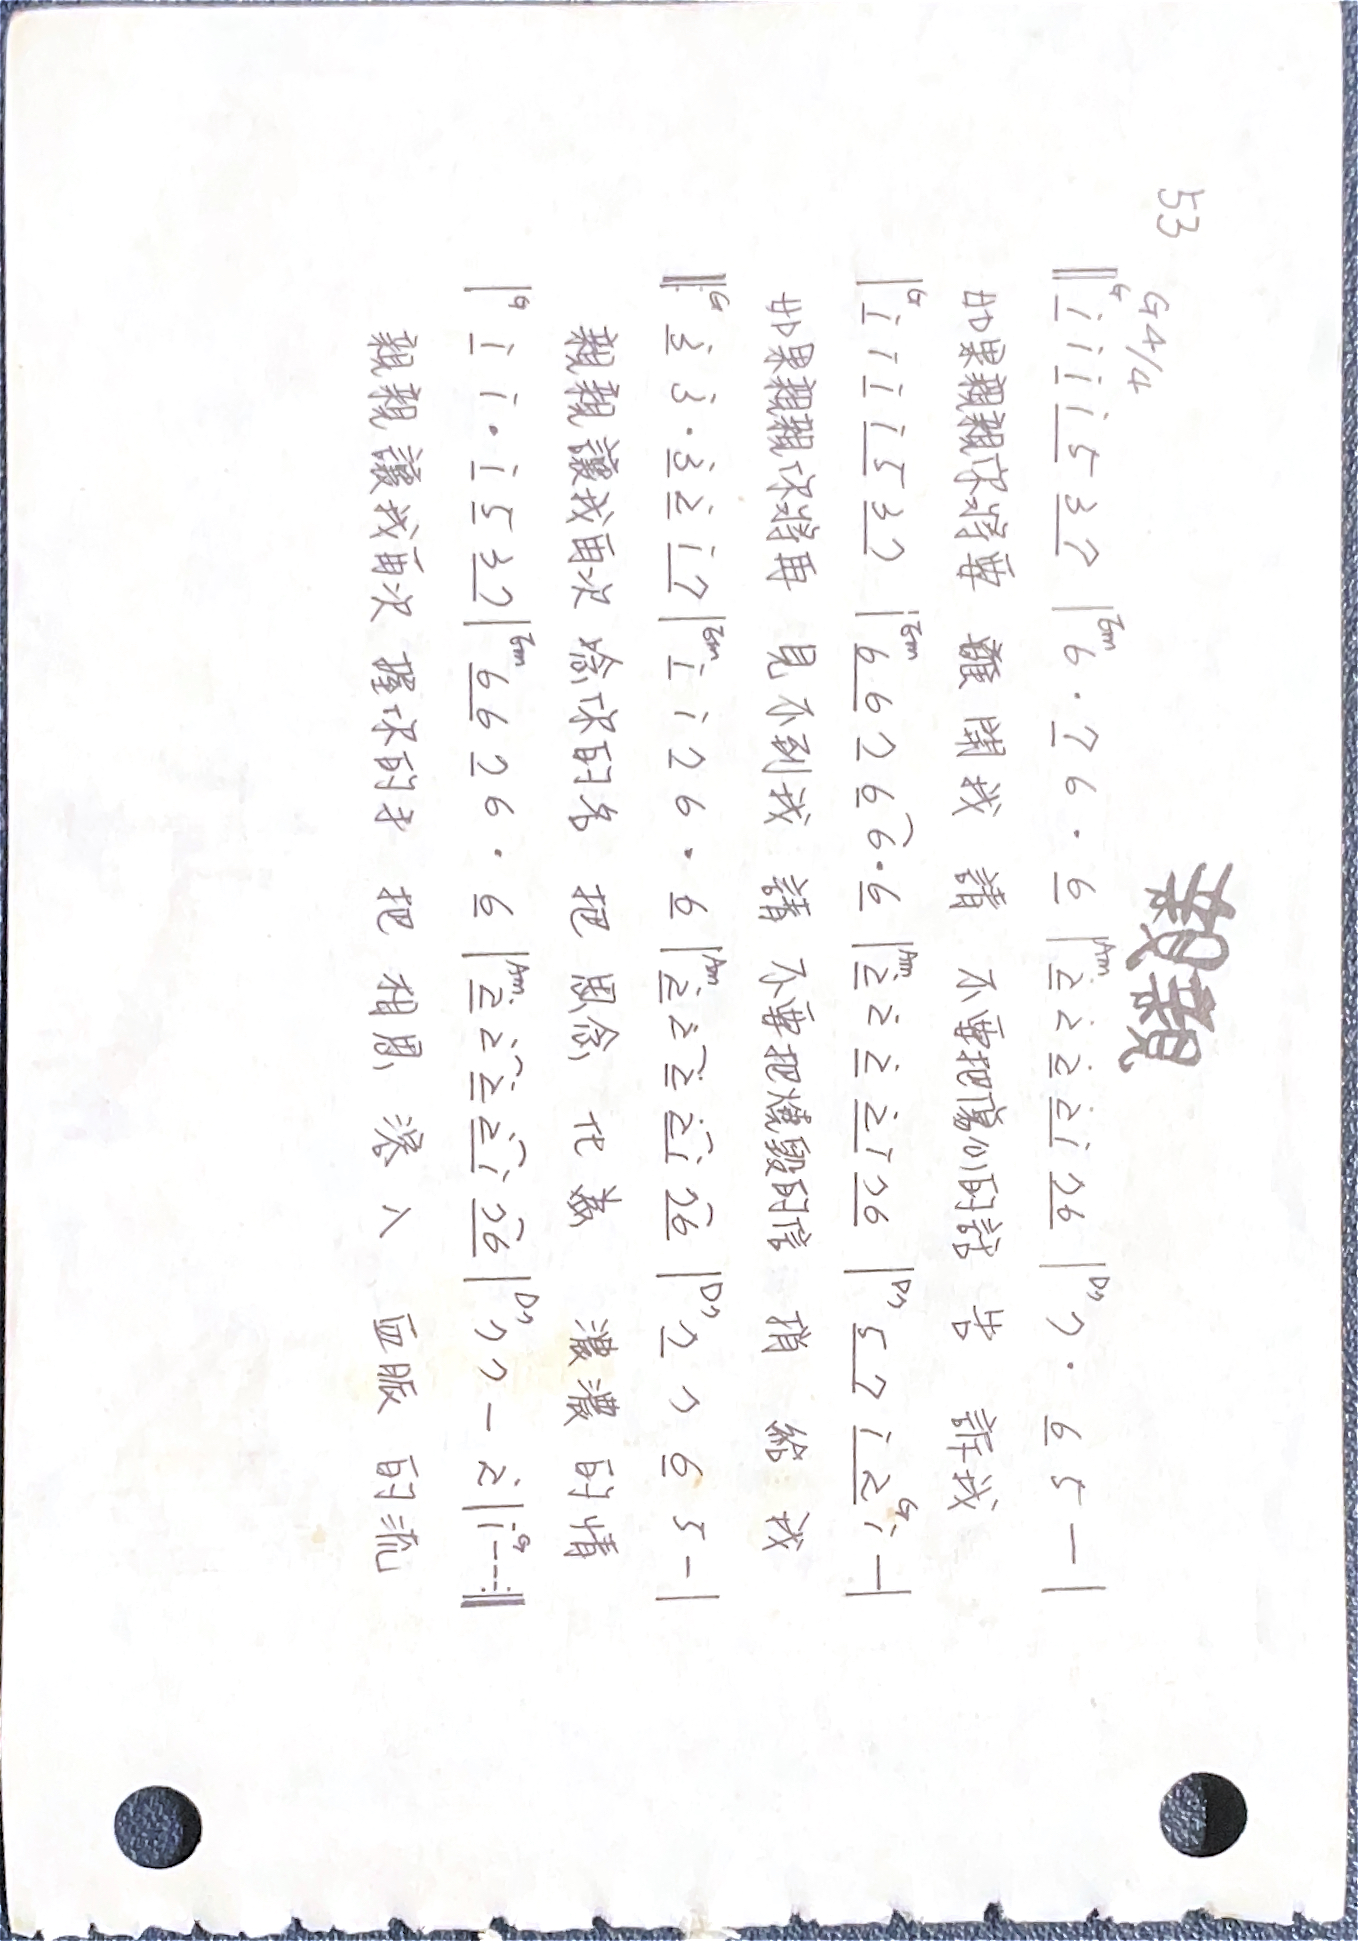 親親
53
G 4/4
‖G i i i i 5 3 7 |Em 6 · 7 6 · 6 |Am 2̇ 2̇ 2̇ 2̇ i 7 6 |D7 7 · 6 5 — |
如果親親你將要 離開我 請 不要把傷心的話 告 訴我
|G i i i i 5 3 7 |Em 6 6 7 6 6 · 6 |Am 2̇ 2̇ 2̇ 2̇ i 7 6 |D7 5 7 i 2̇ G i — |
如果親親你將再 見不到我 請 不要把燒毀的信 捎 給 我
‖:G 3̇ 3̇ · 3̇ 2̇ i 7 |Em i i 7 6 · 6 |Am 2̇ 2̇ 2̇ 2̇ i 7 6 |D7 7 7 6 5 — |
親親讓我再次 唸你的名 把 思念 化 為 濃濃 的情
|G i i · i 5 3 7 |Em 6 6 7 6 · 6 |Am 2̇ 2̇ 2̇ 2̇ i 7 6 |D7 7 7 — 2̇ | i G - - - :‖
親親讓我再次 握你的手 把 相思 溶 入 血脈 的流